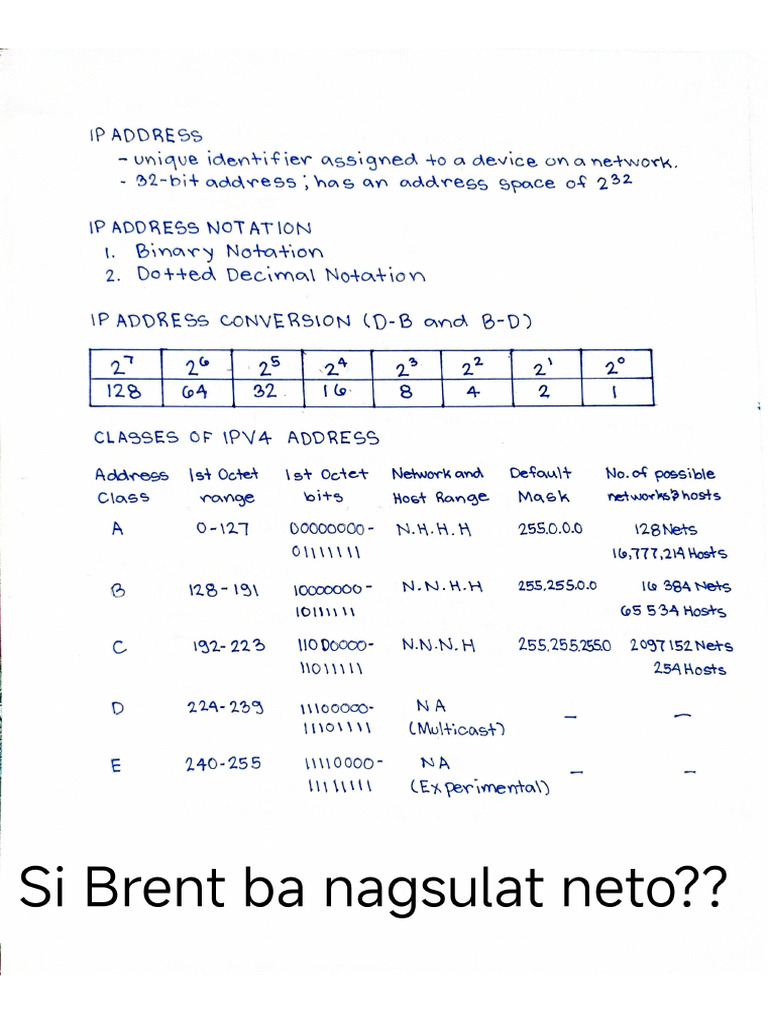 IP ADDRESS
- unique identifier assigned to a device on a network.
- 32-bit address; has an address space of 2³²
IP ADDRESS NOTATION
1. Binary Notation
2. Dotted Decimal Notation
IP ADDRESS CONVERSION (D-B and B-D)
2⁷ 2⁶ 2⁵ 2⁴ 2³ 2² 2¹ 2⁰
128 64 32 16 8 4 2 1
CLASSES OF IPV4 ADDRESS
Address 1st Octet 1st Octet Network and Default No. of possible
Class range bits Host Range Mask networks & hosts
A 0-127 00000000- N.H.H.H 255.0.0.0 128 Nets
01111111 16,777,214 Hosts
B 128-191 10000000- N.N.H.H 255.255.0.0 16 384 Nets
10111111 65 534 Hosts
C 192-223 11000000- N.N.N.H 255.255.255.0 2097152 Nets
11011111 254 Hosts
D 224-239 11100000- NA — —
11101111 (Multicast)
E 240-255 11110000- NA — —
11111111 (Experimental)
Si Brent ba nagsulat neto??